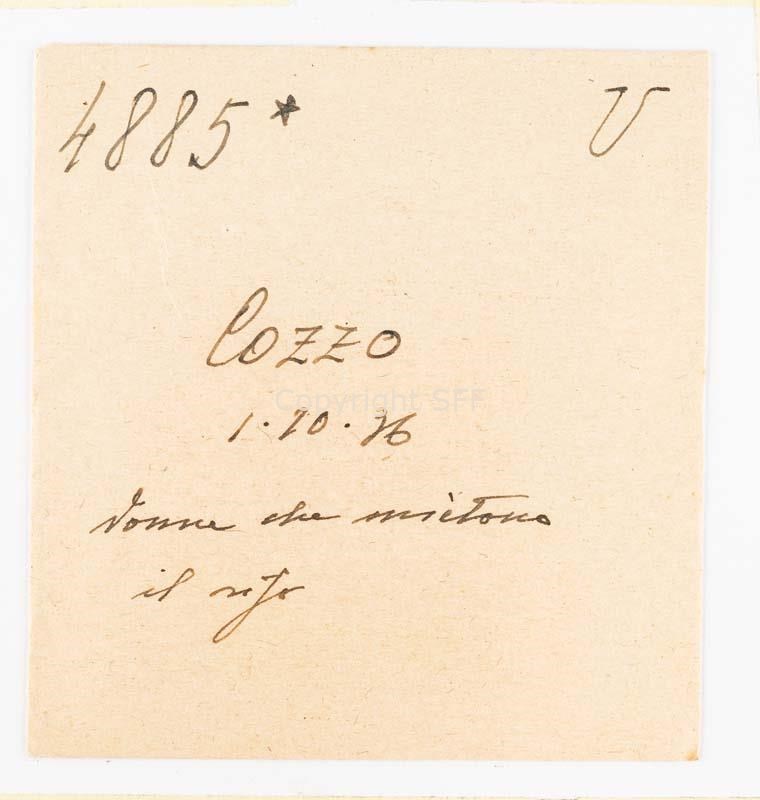 4885* V
Cozzo
Copyright SFF
1.10.36
donne che miètono
il riso